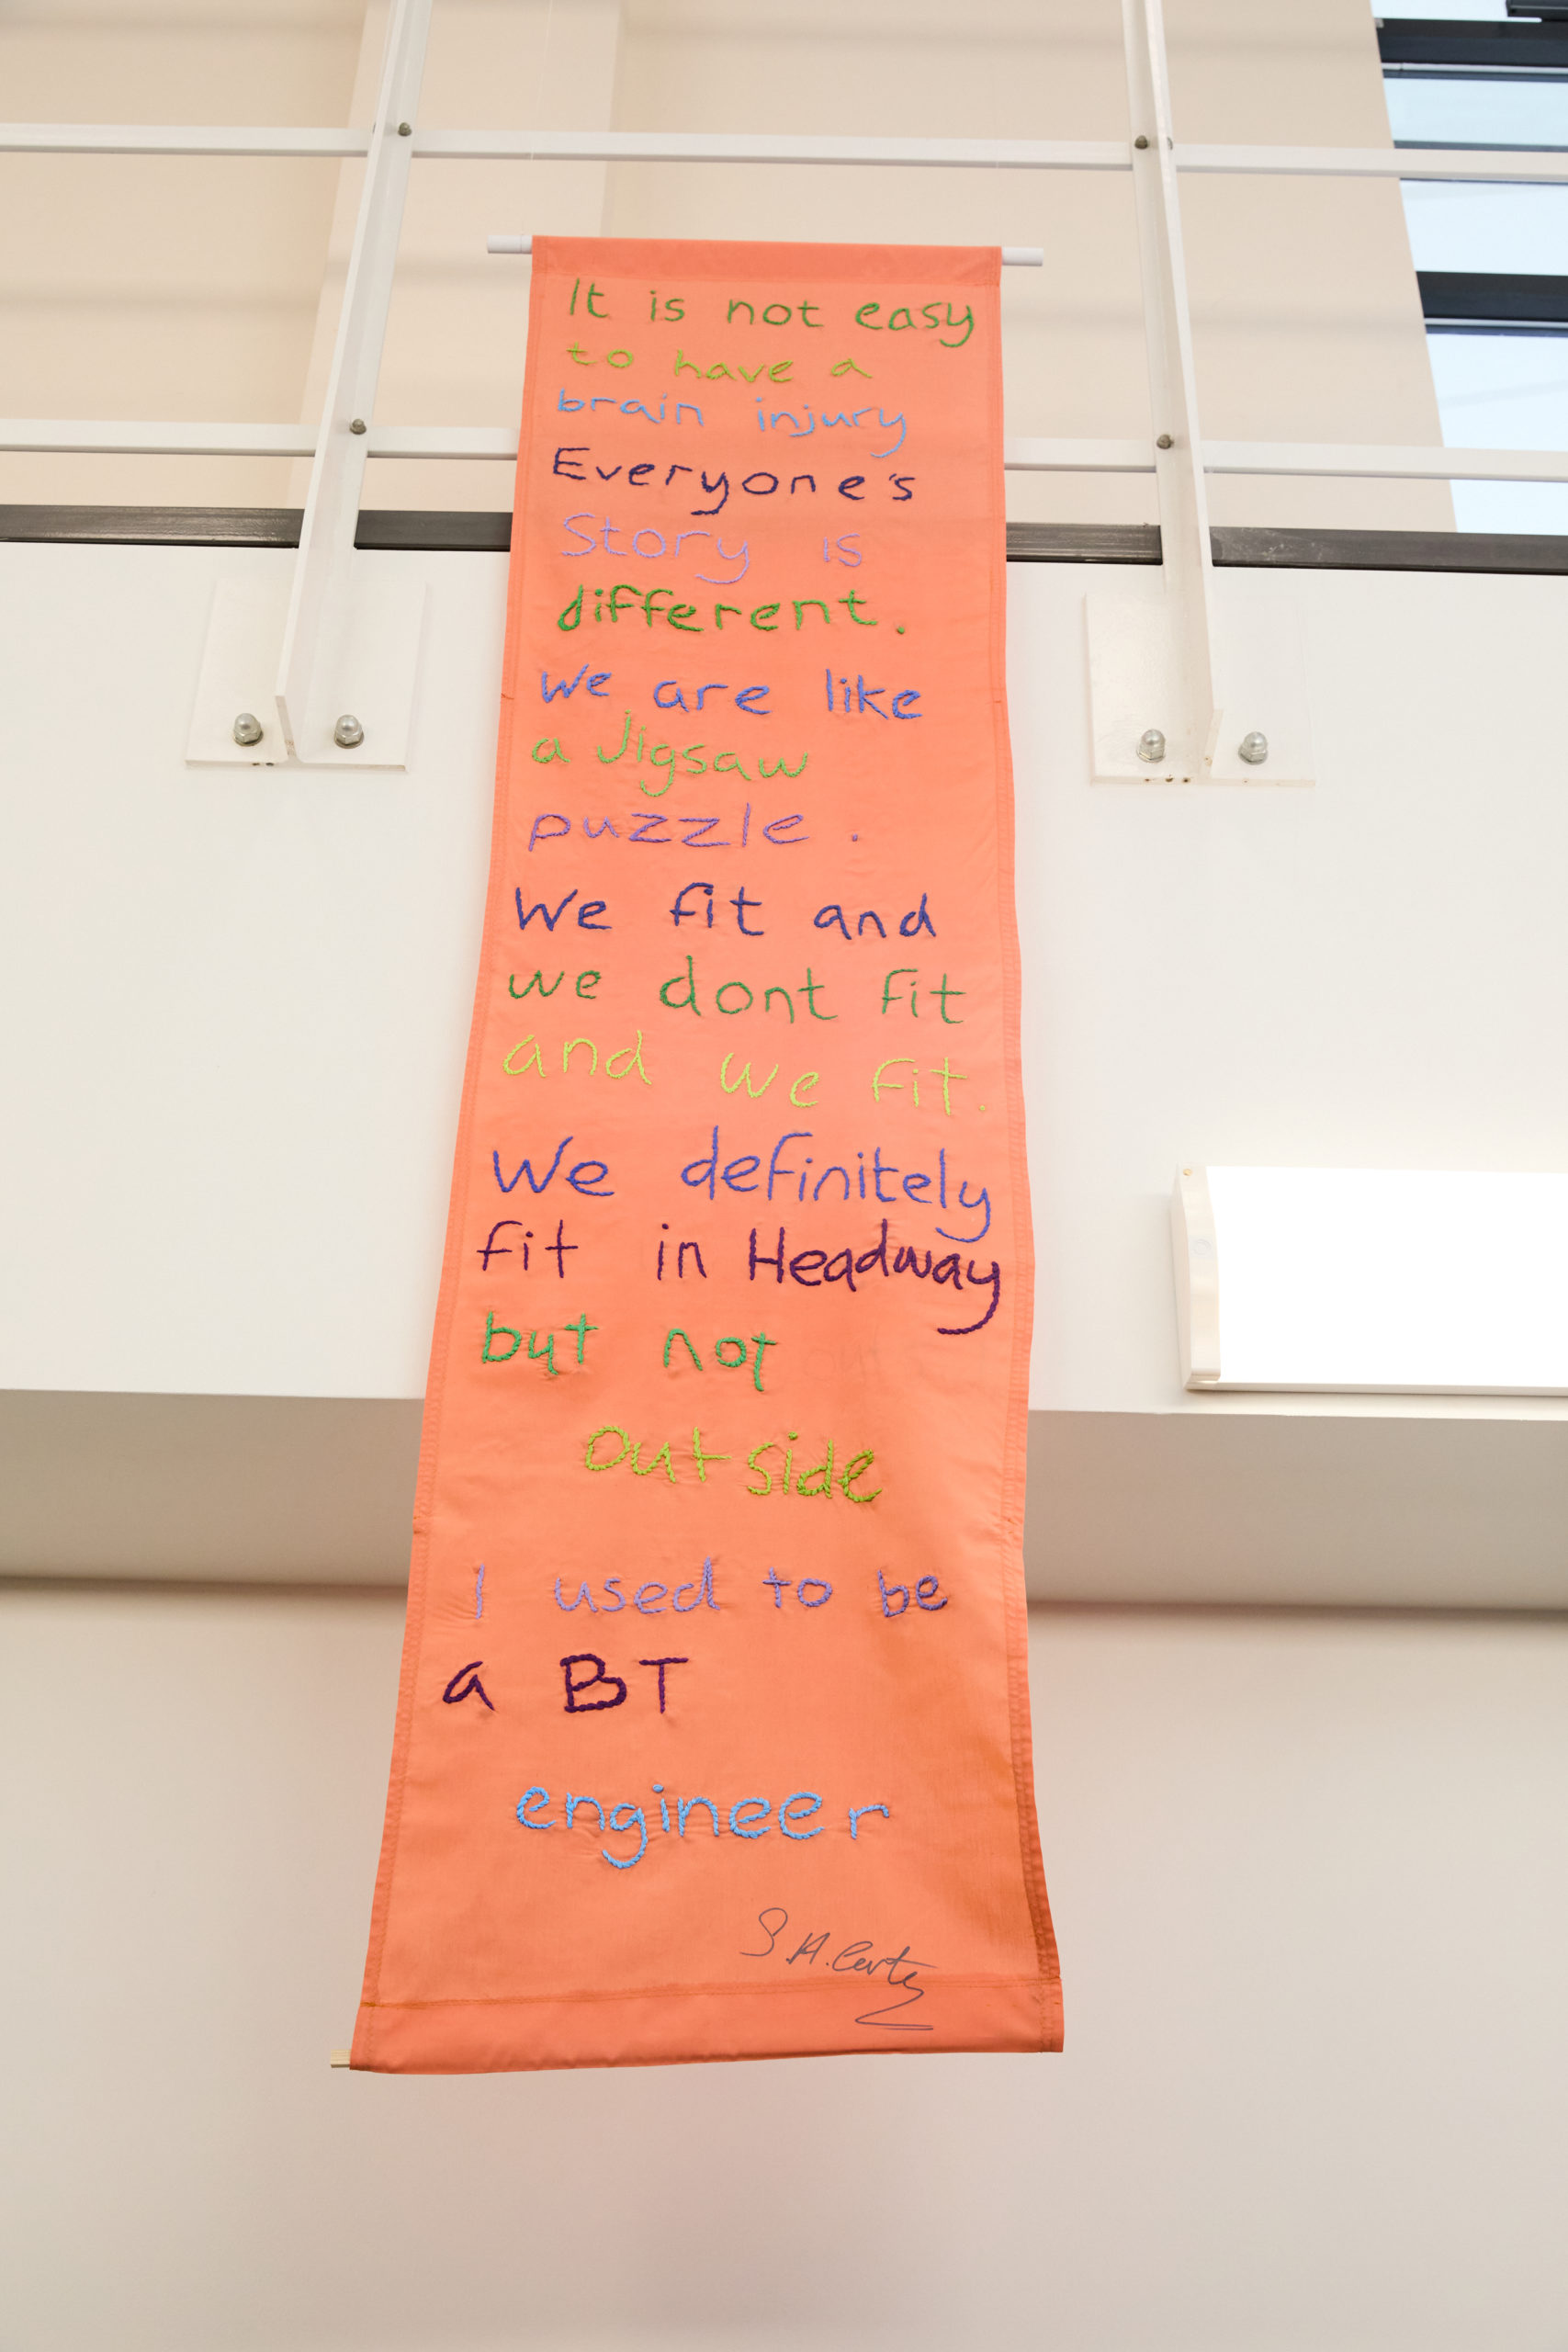 It is not easy
to have a
brain injury
Everyone's
Story is
different.
We are like
a Jigsaw
puzzle.
We fit and
we dont fit
and We fit.
We definitely
fit in Headway
but not
outside
I used to be
a BT
engineer
S.A.